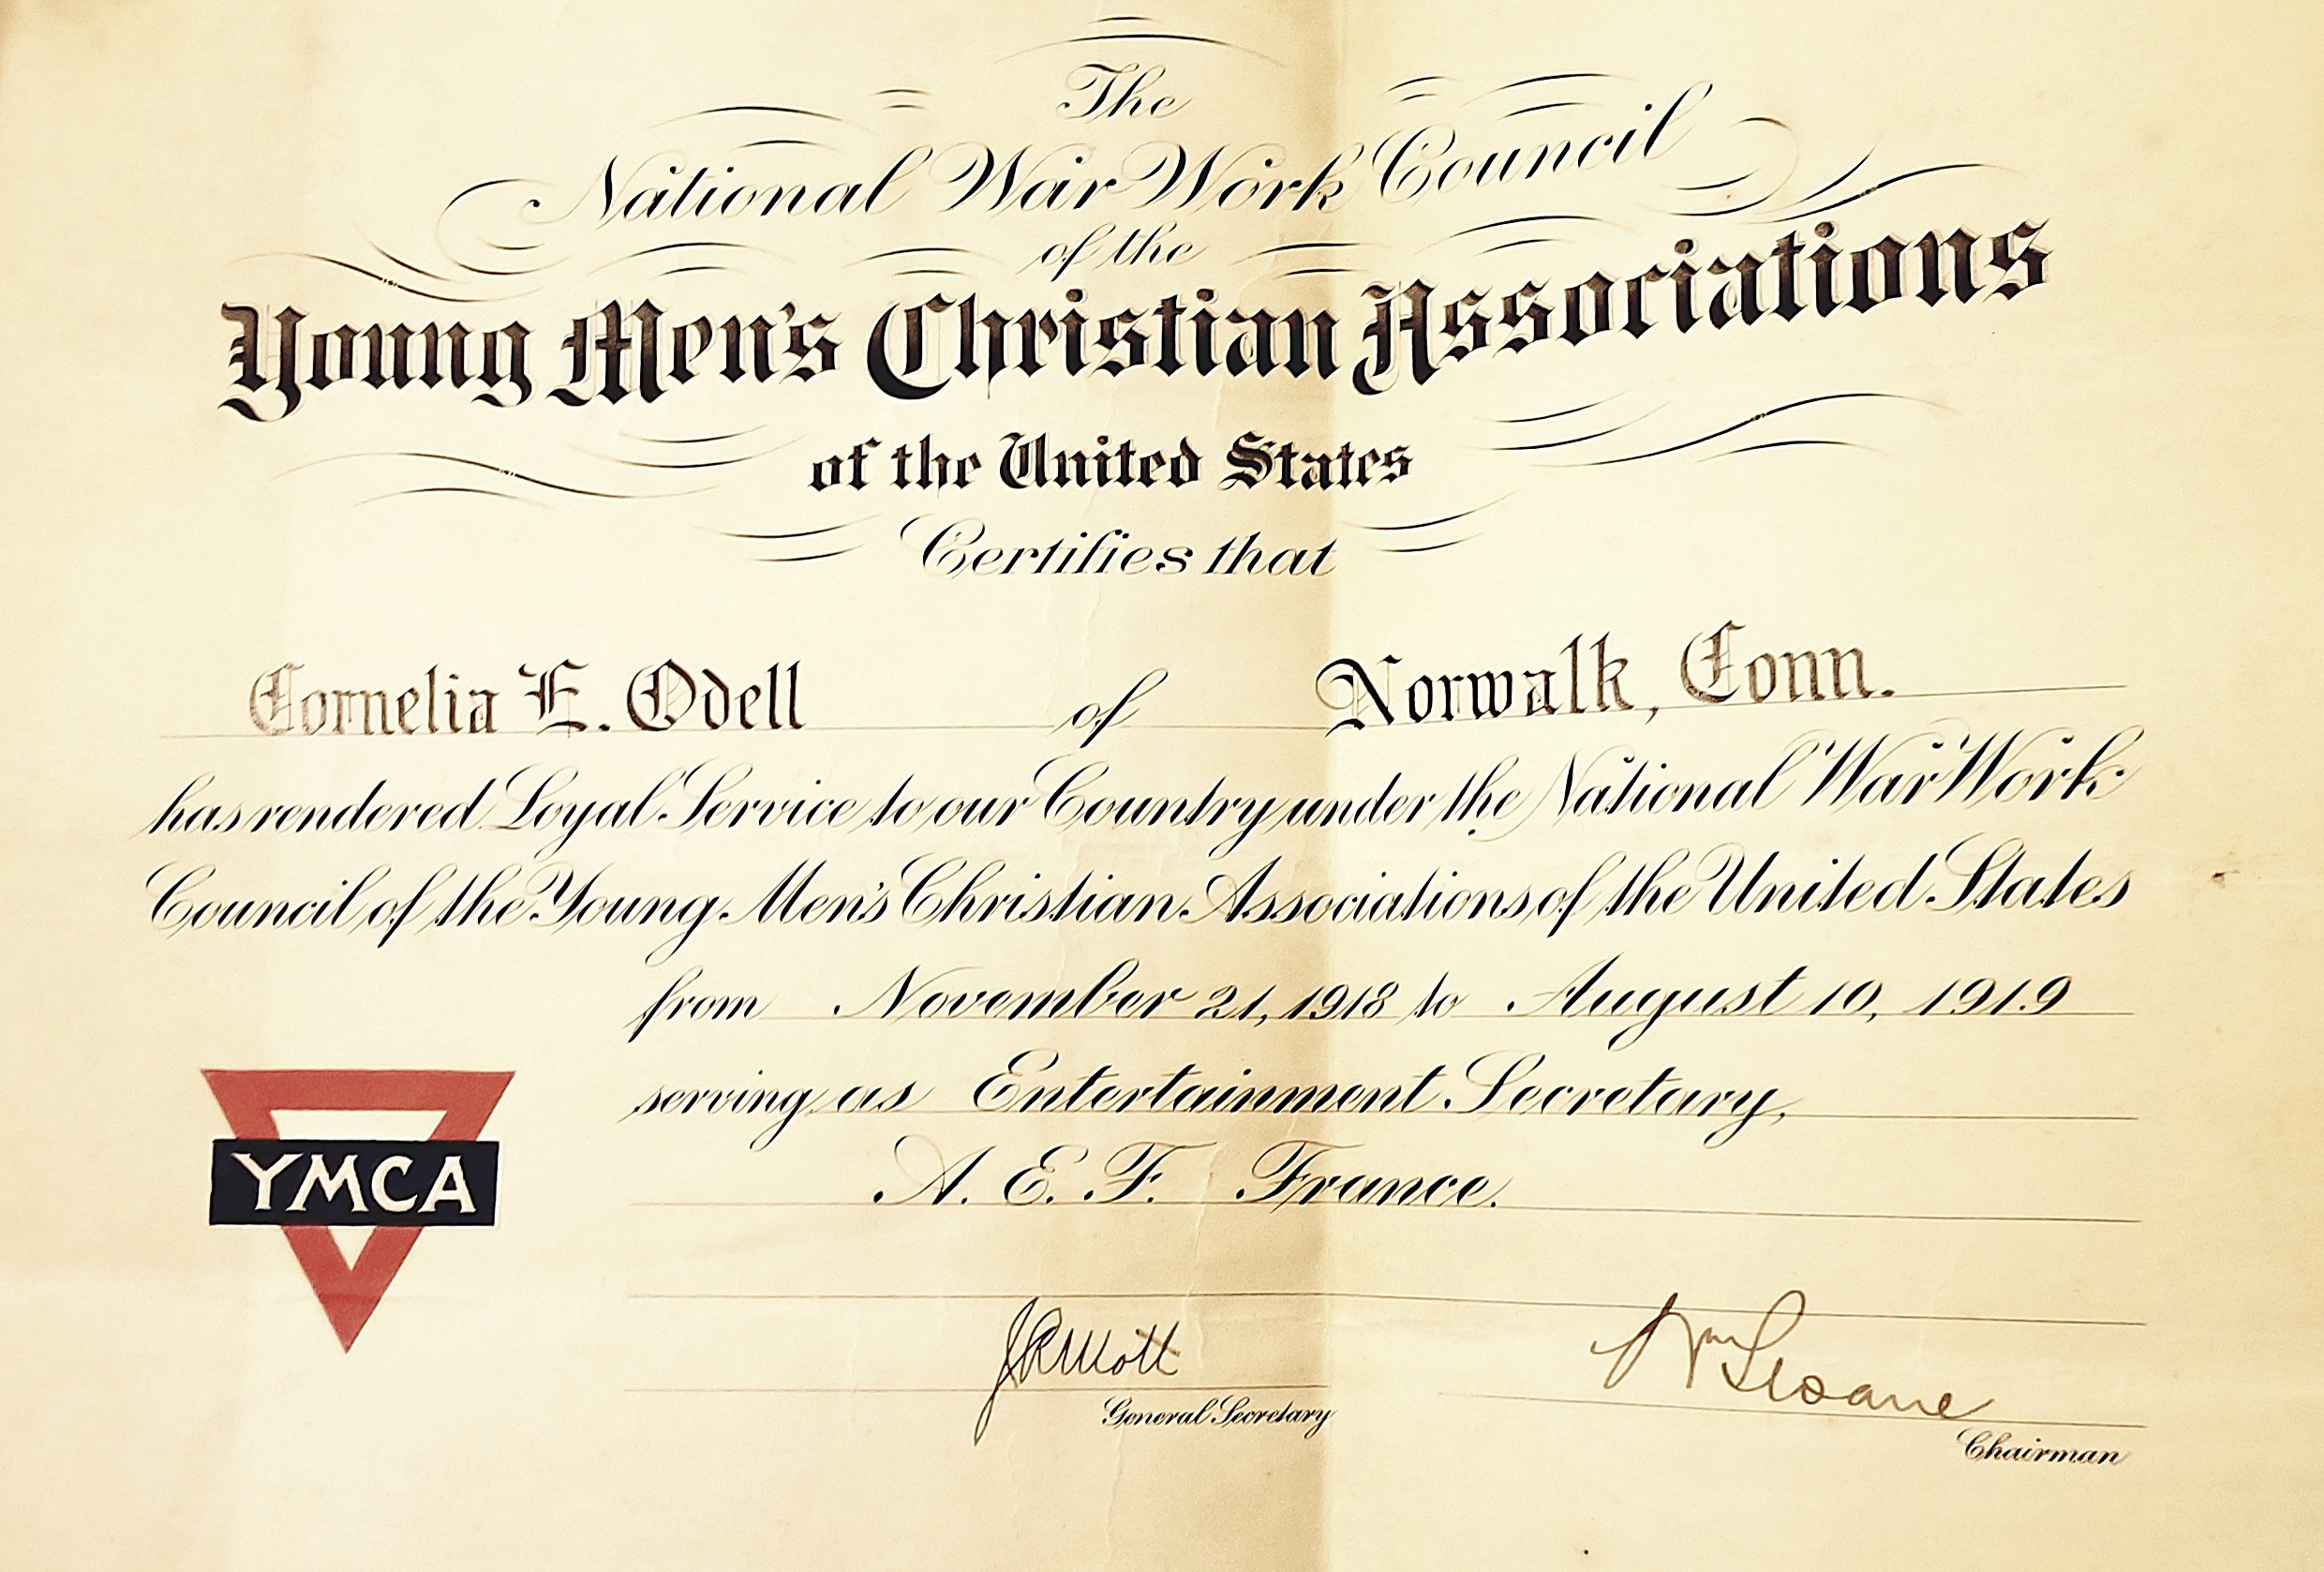 The
National War Work Council
of the
Young Men's Christian Associations
of the United States
Certifies that
Cornelia E. Odell of Norwalk, Conn.
has rendered Loyal Service to our Country under the National War Work
Council of the Young Men's Christian Associations of the United States
from November 21, 1918 to August 10, 1919
serving as Entertainment Secretary,
A. E. F. France.
YMCA
J R Mott
General Secretary
Wm Sloane
Chairman